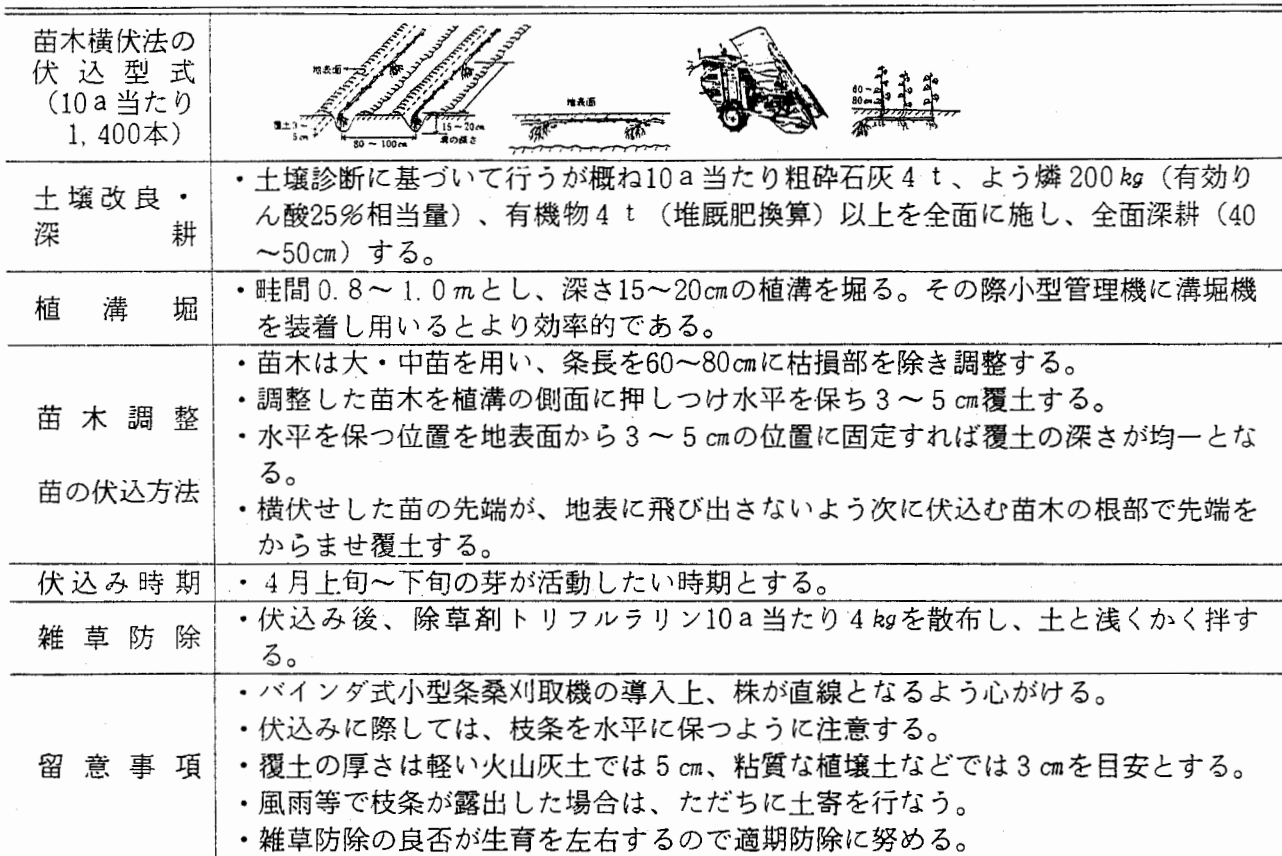 苗木横伏法の
伏込型式
（10a当たり
1,400本）
地表面
覆土3～
5cm
80～100cm
15～20cm
溝の深さ
地表面
60～
80cm
土壌改良・
深耕
・土壌診断に基づいて行うが概ね10a当たり粗砕石灰4t、よう燐200kg（有効り
ん酸25％相当量）、有機物4t（堆厩肥換算）以上を全面に施し、全面深耕（40
～50cm）する。
植溝堀
・畦間0.8～1.0mとし、深さ15～20cmの植溝を堀る。その際小型管理機に溝堀機
を装着し用いるとより効率的である。
苗木調整
苗の伏込方法
・苗木は大・中苗を用い、条長を60～80cmに枯損部を除き調整する。
・調整した苗木を植溝の側面に押しつけ水平を保ち3～5cm覆土する。
・水平を保つ位置を地表面から3～5cmの位置に固定すれば覆土の深さが均一とな
る。
・横伏せした苗の先端が、地表に飛び出さないよう次に伏込む苗木の根部で先端を
からませ覆土する。
伏込み時期
・4月上旬～下旬の芽が活動したい時期とする。
雑草防除
・伏込み後、除草剤トリフルラリン10a当たり4kgを散布し、土と浅くかく拌す
る。
留意事項
・バインダ式小型条桑刈取機の導入上、株が直線となるよう心がける。
・伏込みに際しては、枝条を水平に保つように注意する。
・覆土の厚さは軽い火山灰土では5cm、粘質な植壌土などでは3cmを目安とする。
・風雨等で枝条が露出した場合は、ただちに土寄を行なう。
・雑草防除の良否が生育を左右するので適期防除に努める。